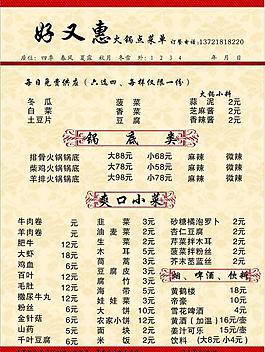 好又惠火锅点菜单 订餐电话:13721818220
座位: 四季 春风 夏露 秋月 冬雪 外: 1 2 3 4 年 月 日
每日免费供应(六选四、每样仅限一份)
火锅小料
冬瓜 菠菜 蒜泥 2元
白菜 香菜 芝麻酱 2元
土豆片 豆腐 香油 2元
锅底类
排骨火锅锅底 大88元 小58元 麻辣 微辣
柴鸡火锅锅底 大98元 小68元 麻辣 微辣
羊排火锅锅底 大98元 小68元 麻辣 微辣
爽口小菜
牛肉卷 元 韭菜 3元 砂糖橘泡萝卜 2元
羊肉卷 元 油麦菜 2元 杏仁豆腐 2元
肥牛 12元 生菜 2元 芹菜拌木耳 2元
大虾 18元 茼蒿 2元 菠菜拌粉丝 2元
鸡血 6元 豆芽 2元 芥末茼蒿丝 2元
百叶 12元 豆腐皮 3元 烟、啤酒、饮料
毛肚 12元 腐竹 3元
撒尿牛丸 12元 海带 2元 黄鹤楼 18元
粉丝 2元 娃娃菜 2元 帝豪 10元
金针菇 6元 大饼 2元 雪花啤酒 4元
山药 5元 农家小饼 12元 黄酒(加温) 15元
千叶豆腐 6元 面块 2元 姜汁可乐 15元
米饭 元 饮料 (大8元 小4元)